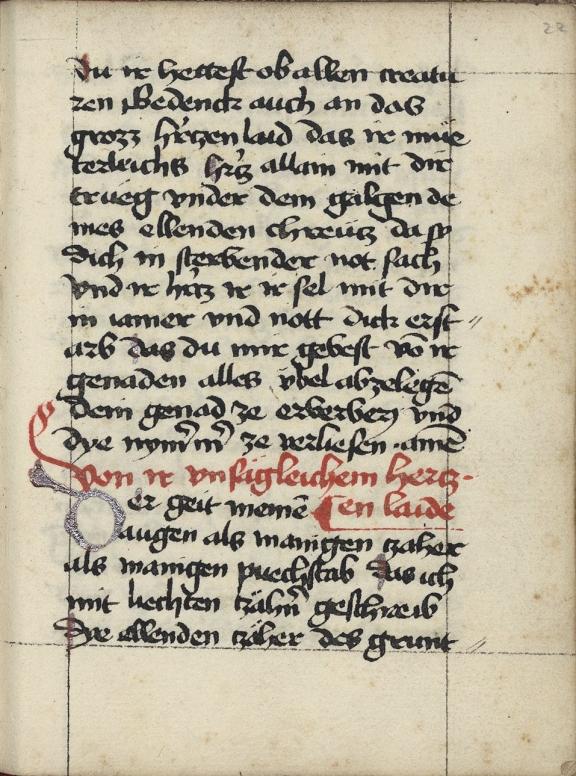 22
du ir hettest ob allen creatu
ren Bedenck auch an das
grozz hrtzen laid das ir mue
terleichs hrtz allain mit dir
trueg vnder dem galgen de
ines ellenden chreutz da sy
dich in sterbender not sach
vnd ir hrtz ir ir sel mit dir
in iamer vnd nott dick erst
arb das du mir gebest vō ir
genaden alles vbel abzelegē
dein genad ze erberben vnd
dye nym̄ ze verliesen amē
Von ir vnsägleichem hertz-
en laide
Der geit meinē
augen als manigen zaher
als manigen puechstab das ich
mit liechten geschreib
Dye ellenden zäher des grunt